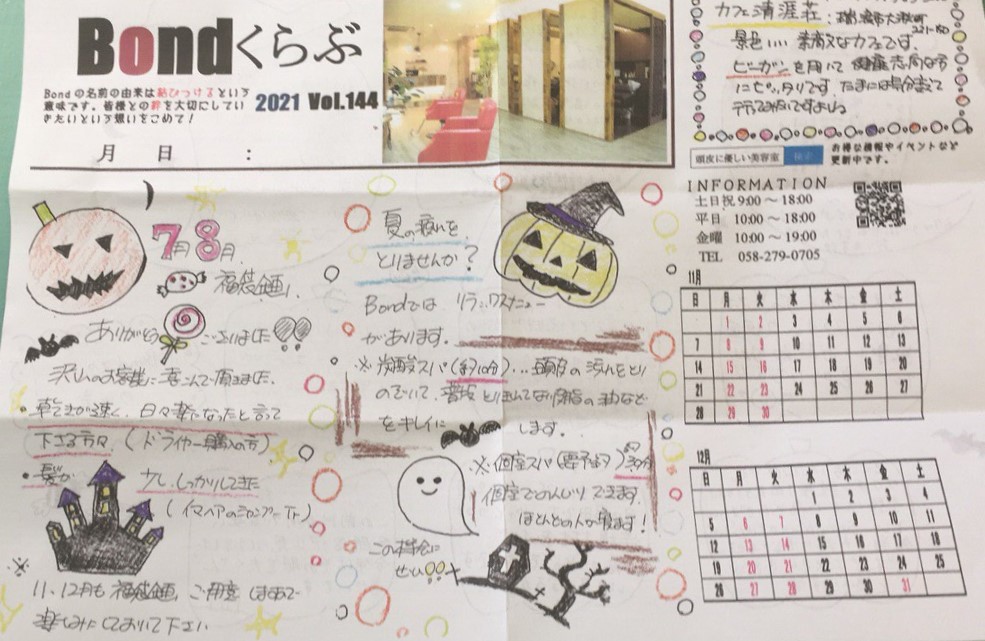 Bondくらぶ
Bondの名前の由来は結びつけるという
意味です。皆様との絆を大切にしてい
きたいという想いをこめて!
2021 Vol.144
月 日 :
7月8月
福袋企画、
ありがとう ございました
沢山のお客様に喜んで頂きました。
・乾きが速く、日々楽になったと言って
下さる方々。(ドライヤー購入の方)
・髪が 少ししっかりしてきた
※
11、12月も福袋企画 ご用意しますので
楽しみにしておいて下さい
夏の疲れを
とりませんか?
Bondでは
があります。
※炭酸スパ(約10分)…頭皮の
をキレイに します。
※個室スパ(要予約)30分
個室でのんびりできます。
ほとんどの人が寝ます!
この機会に
ぜひ!!
カフェ清涯荘:瑞浪市大湫町
景色いい 素敵なカフェです。
ビーガンを用いて 健康志向な方
にピッタリです。
頭皮に優しい美容室 検索
お得な情報やイベントなど
更新中です。
INFORMATION
土日祝 9:00 ～ 18:00
平日 10:00 ～ 18:00
金曜 10:00 ～ 19:00
TEL 058-279-0705
11月
日 月 火 水 木 金 土
1 2 3 4 5 6
7 8 9 10 11 12 13
14 15 16 17 18 19 20
21 22 23 24 25 26 27
28 29 30
12月
日 月 火 水 木 金 土
1 2 3 4
5 6 7 8 9 10 11
12 13 14 15 16 17 18
19 20 21 22 23 24 25
26 27 28 29 30 31